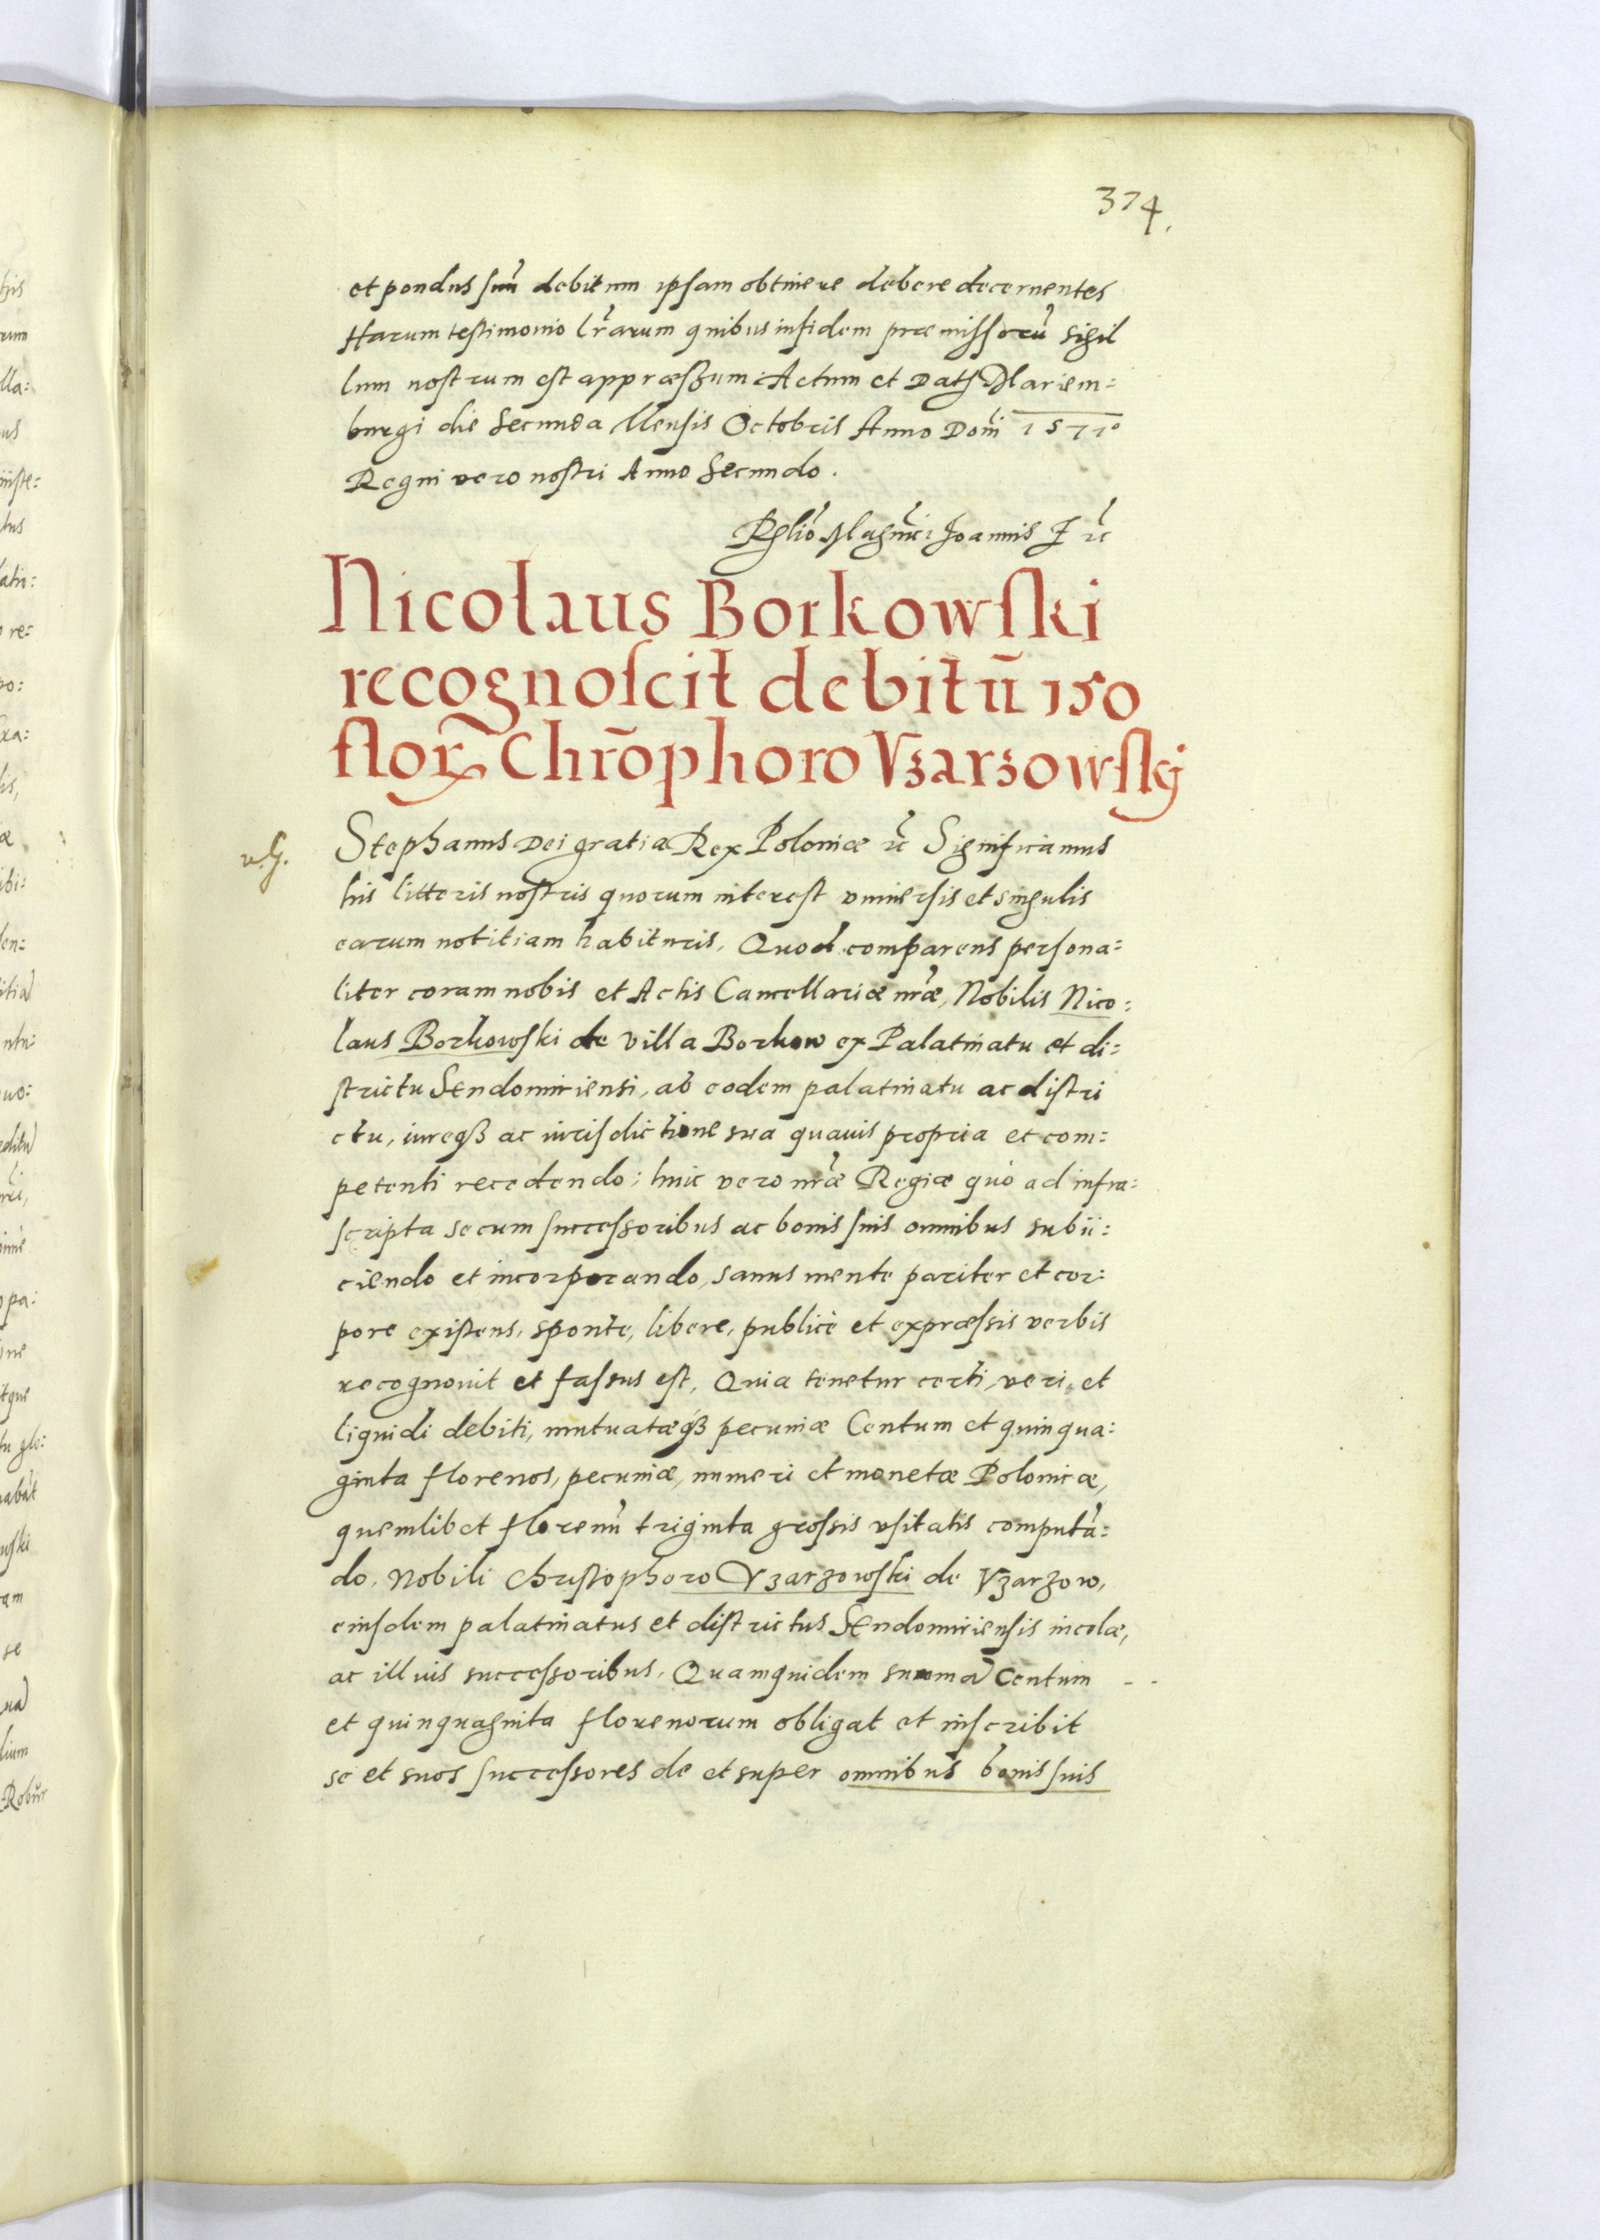 374.
et pondus suū debitum ipsam obtinere debere decernentes
Harum testimonio lr̄arum quibus in fidem præmissorū sigil
lum nostrum est appræssum. Actum et Datȝ Mariem=
burgi die Secunda Mensis Octobris Anno Domī 1577º
Regni vero nostri Anno Secundo.
Rlīo Magnīci Joannis
Nicolaus Borkowski
recognoscit debitū 150
flor. Chrōphoro Vzarzowskÿ
Stephanus Dei gratia Rex Poloniæ ꝛc̄ Significamus
his litteris nostris quorum interest vniuersis et singulis
earum notitiam habituris. Quod comparens persona=
liter coram nobis et Actis Cancellariæ nr̄æ, Nobilis Nico=
laus Borkowski de villa Borkow ex Palatinatu et di=
strictu Sendomiriensi, ab eodem palatinatu ac distri
ctu, iureqȝ ac iurisdictione sua quauis propria et com=
petenti recedendo; huic vero nr̄æ Regiæ quò ad infra=
scripta se cum successoribus ac bonis suis omnibus subii=
ciendo et incorporando, sanus mente pariter et cor=
pore existens, sponte, libere, publicè et expræssis verbis
recognouit et fassus est, Quia tenetur certi, veri, et
liquidi debiti, mutuatæqȝ pecuniæ Centum et quinqua=
ginta florenos, pecuniæ, numeri et monetæ Polonicæ,
quemlibet florenū triginta grossis vsitatis computā=
do, Nobili Christophoro Vzarzowski de Vzarzow,
eiusdem palatinatus et districtus Sendomiriensis incolæ,
ac illius successoribus. Quamquidem summā Centum
et quinquaginta florenorum obligat et inscribit
se et suos successores de et super omnibus bonis suis